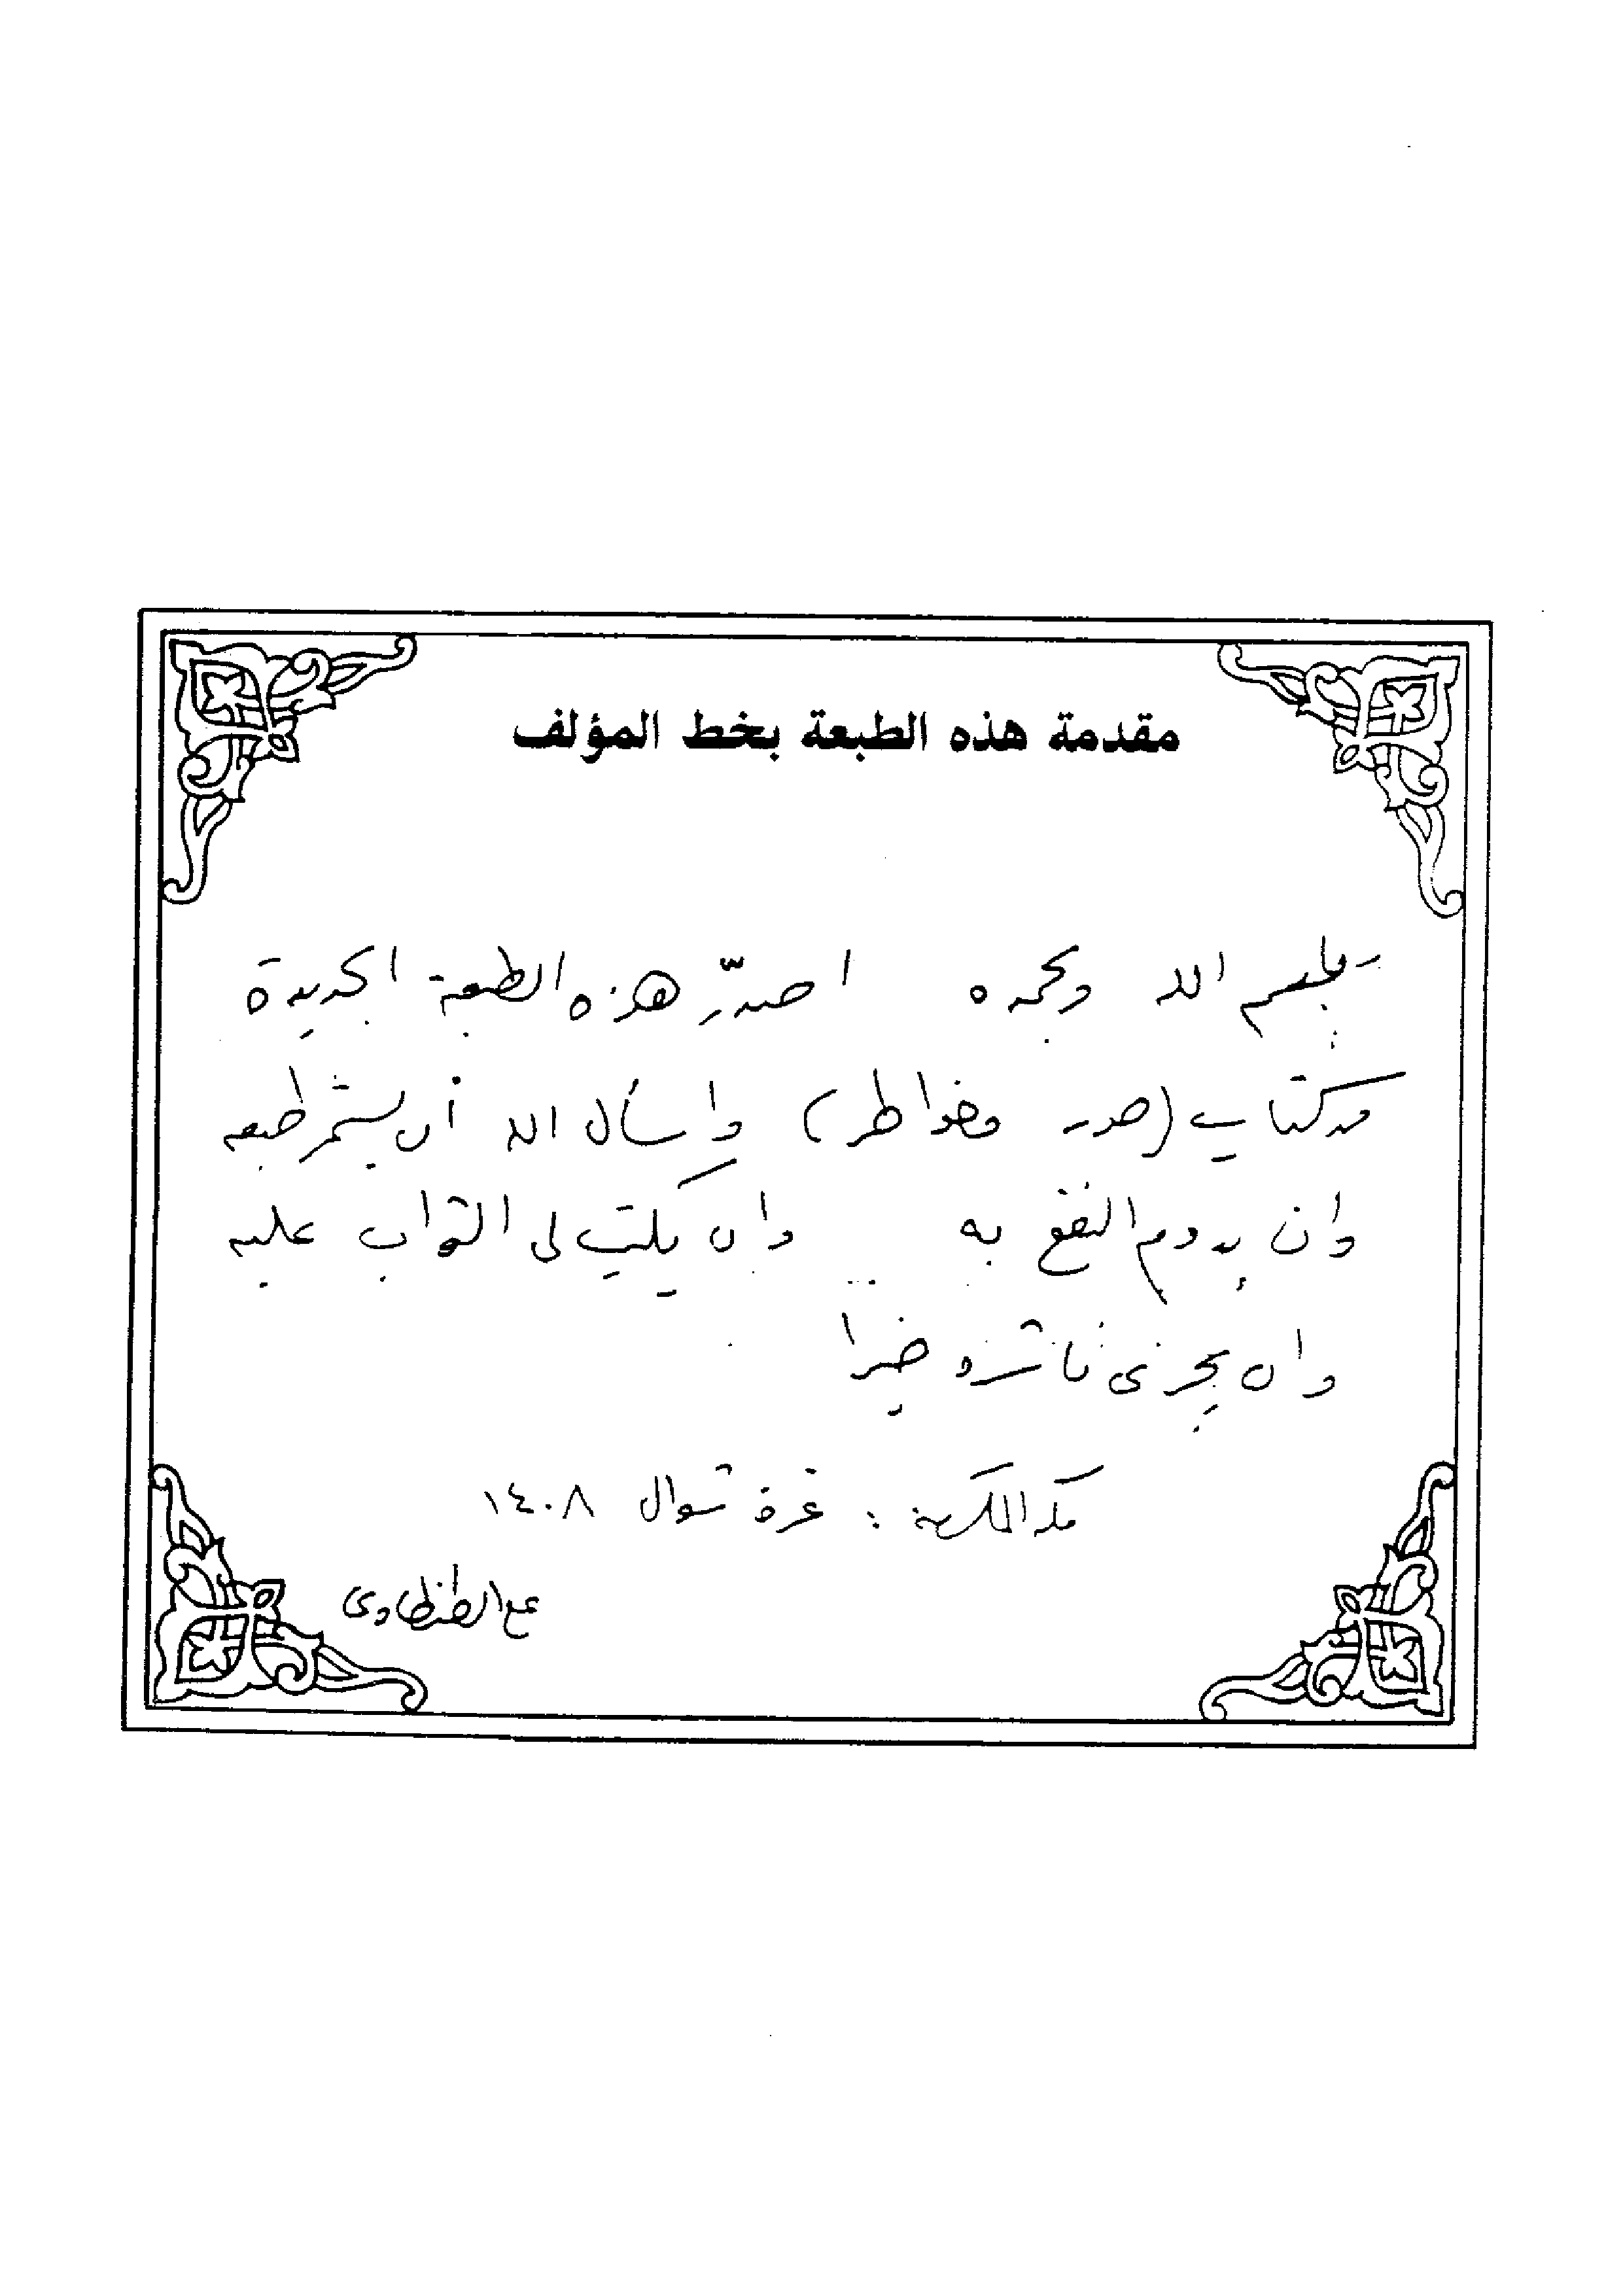 مقدمة هذه الطبعة بخط المؤلف
بسم الله وبحمده اصدّر هذه الطبعة الجديدة
من كتاب (صور وخواطر) واسأل الله أن يستمر طبعه
وان يدوم النفع به وان يكتب لي الثواب عليه
وان يجزي ناشره خيرا
مكة المكرمة : غرة شوال ١٤٠٨
علي الطنطاوي